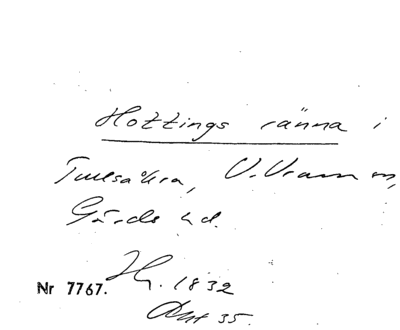 Hottings ränna i
Tullesåkra, V. Vram sn,
Gärds hd.
Nr 7767. Hg. 1832
Akt 35.